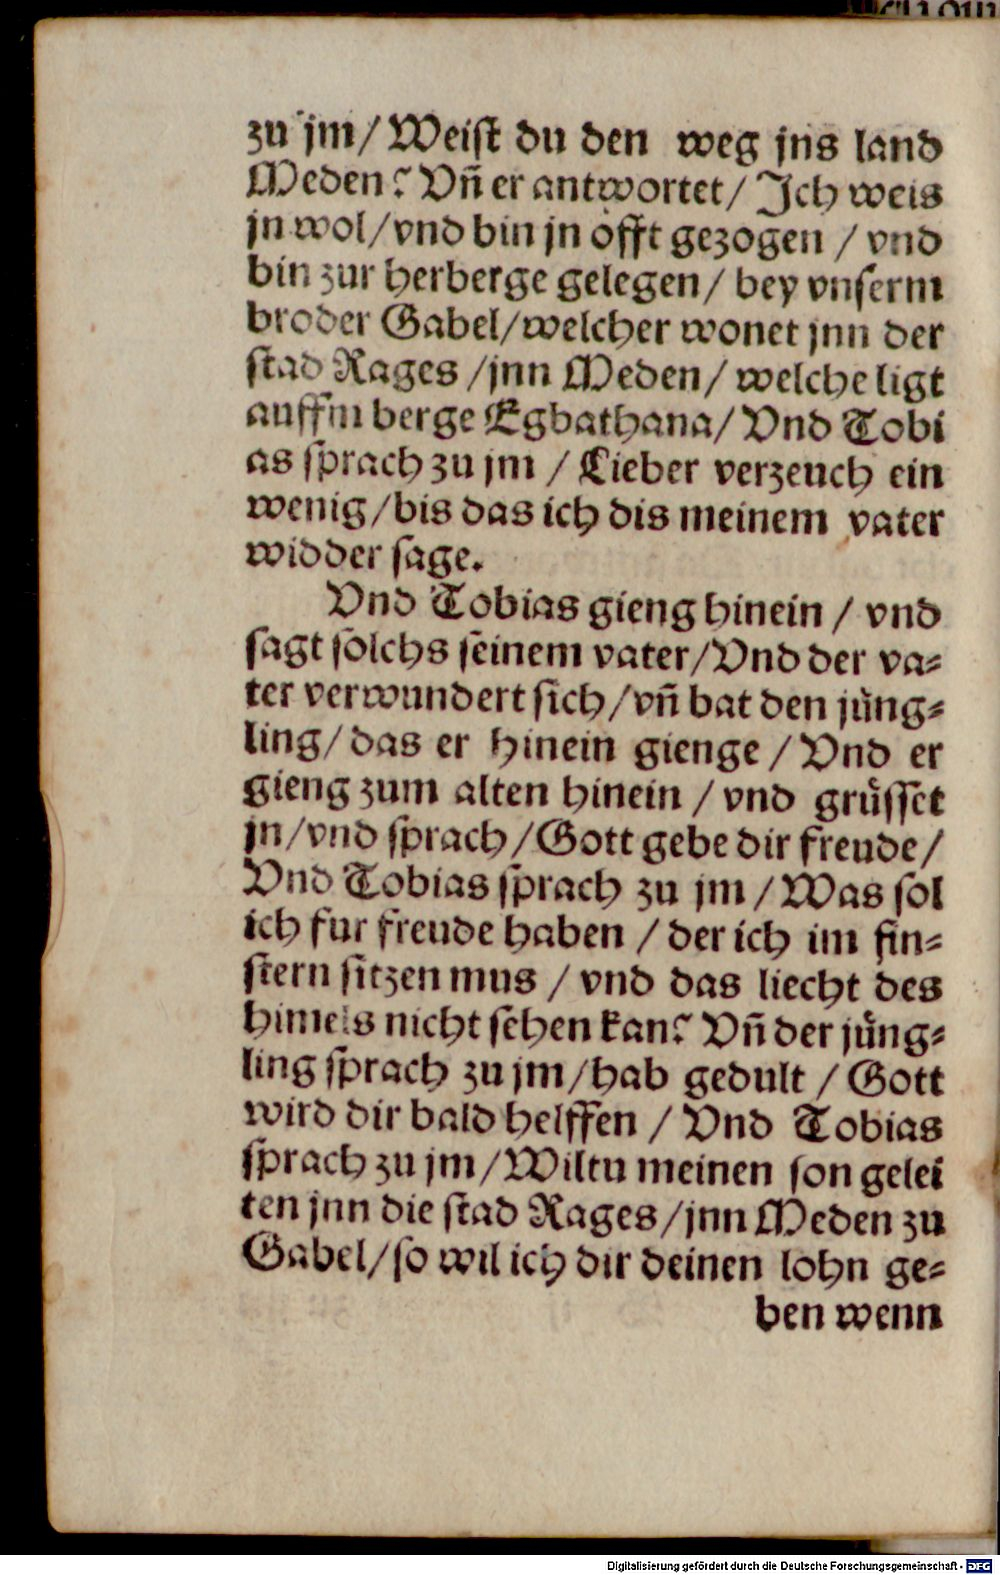 zu jm/ Weist du den weg jns land
Meden? Vñ er antwortet/ Jch weis
jn wol/vnd bin jn offt gezogen / vnd
bin zur herberge gelegen/ bey vnserm
broder Gabel/welcher wonet jnn der
stad Rages /jnn Meden/ welche ligt
auffm berge Egbathana/ Vnd Tobi
as sprach zu jm / Lieber verzeuch ein
wenig/bis das ich dis meinem vater
widder sage.
Vnd Tobias gieng hinein / vnd
sagt solchs seinem vater/Vnd der va⸗
ter verwundert sich/vñ bat den jüng⸗
ling/ das er hinein gienge / Vnd er
gieng zum alten hinein / vnd grüsset
jn/vnd sprach/Gott gebe dir freude/
Vnd Tobias sprach zu jm / Was sol
ich fur freude haben / der ich im fin⸗
stern sitzen mus / vnd das liecht des
himels nicht sehen kan? Vñ der jüng⸗
ling sprach zu jm/hab gedult / Gott
wird dir bald helffen / Vnd Tobias
sprach zu jm/Wiltu meinen son gelei
ten jnn die stad Rages/jnn Meden zu
Gabel/so wil ich dir deinen lohn ge⸗
ben wenn
Digitalisierung gefördert durch die Deutsche Forschungsgemeinschaft - DFG